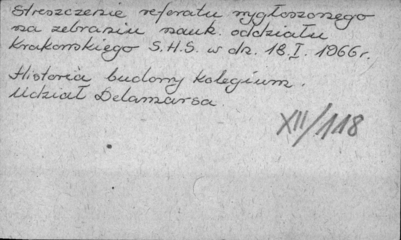 Streszczenie referatu wygłoszonego
na zebraniu nauk. oddziału
Krakowskiego S.H.S. w dn. 18.I. 1966 r.
Historia budowy kolegium.
Udział Delamarsa
XII/118